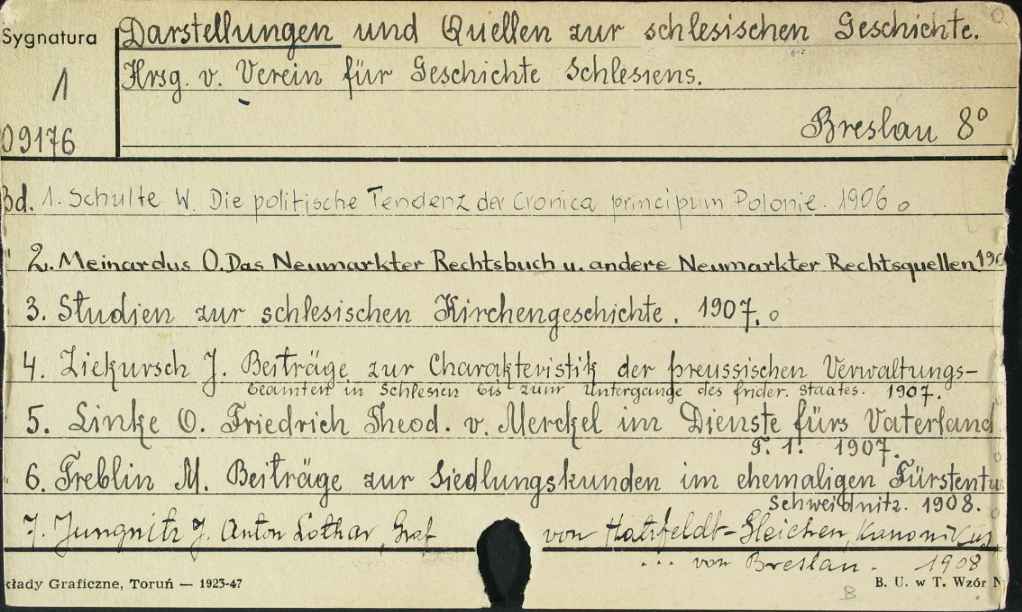 Sygnatura
Darstellungen und Quellen zur schlesischen Geschichte.
1
Hrsg. v. Verein für Geschichte Schlesiens.
09176
Breslau 8°
Bd. 1. Schulte W. Die politische Tendenz der Cronica principum Polonie. 1906
2. Meinardus O. Das Neumarkter Rechtsbuch u. andere Neumarkter Rechtsquellen 190
3. Studien zur schlesischen Kirchengeschichte. 1907.
4. Ziekursch J. Beiträge zur Charakteristik der preussischen Verwaltungs-
beamten in Schlesien bis zum Untergange des frider. Staates. 1907.
5. Linke O. Friedrich Theod. v. Merckel im Dienste fürs Vaterland
T. 1. 1907.
6. Treblin M. Beiträge zur Siedlungskunden im ehemaligen Fürstentu
Schweidnitz. 1908.
7. Jungnitz J. Anton Lothar, Graf von Hatzfeldt-Gleichen, Kanonikus
... von Breslau. 1908
kłady Graficzne, Toruń — 1923-47
B
B. U. w T. Wzór N